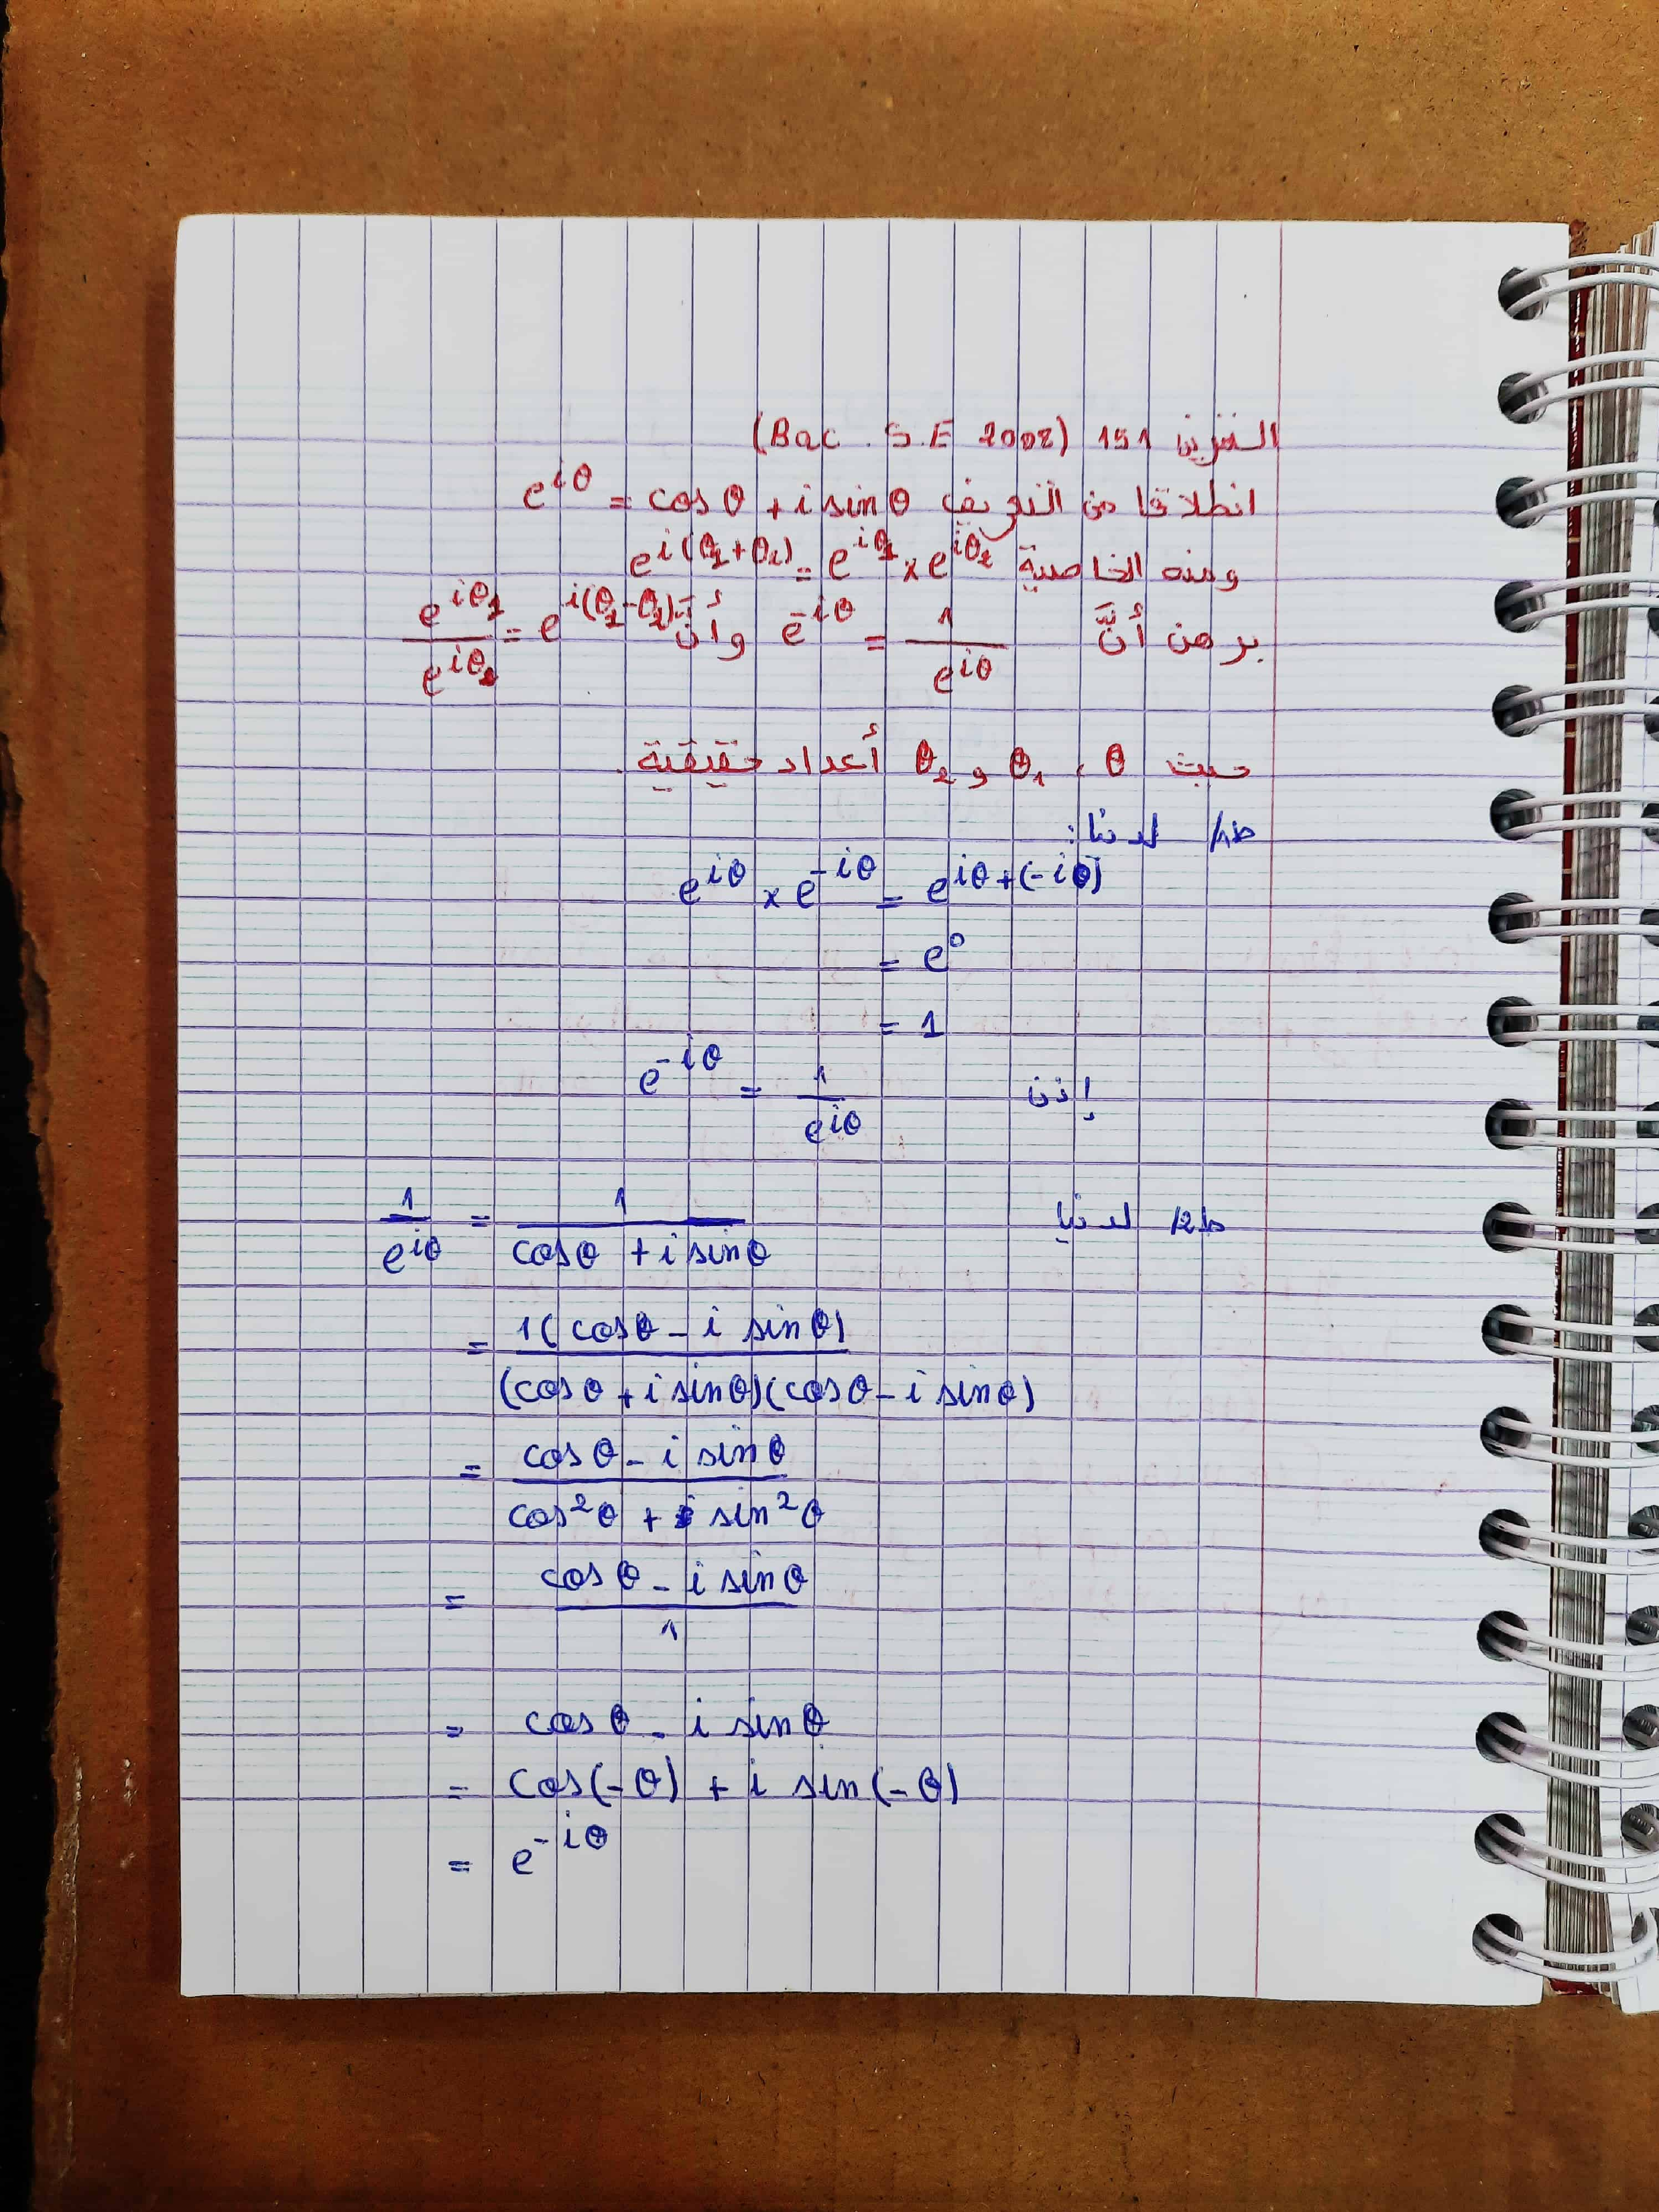 التمرين 151 (Bac . S.E 2008)
انطلاقا من التعريف e^{iθ} = cos θ + i sin θ
ومنه الخاصية e^{i(θ_1+θ_2)} = e^{iθ_1} × e^{iθ_2}
برهن أنَّ e^{-iθ} = \frac{1}{e^{iθ}} وأنَّ \frac{e^{iθ_1}}{e^{iθ_2}} = e^{i(θ_1-θ_2)}
حيث θ ، θ_1 و θ_2 أعداد حقيقية .
ط1/ لدينا:
e^{iθ} × e^{-iθ} = e^{iθ+(-iθ)}
= e^0
= 1
إذن e^{-iθ} = \frac{1}{e^{iθ}}
ط2/ لدينا \frac{1}{e^{iθ}} = \frac{1}{cos θ + i sin θ}
= \frac{1(cos θ - i sin θ)}{(cos θ + i sin θ)(cos θ - i sin θ)}
= \frac{cos θ - i sin θ}{cos^2 θ + sin^2 θ}
= \frac{cos θ - i sin θ}{1}
= cos θ - i sin θ
= cos(-θ) + i sin(-θ)
= e^{-iθ}